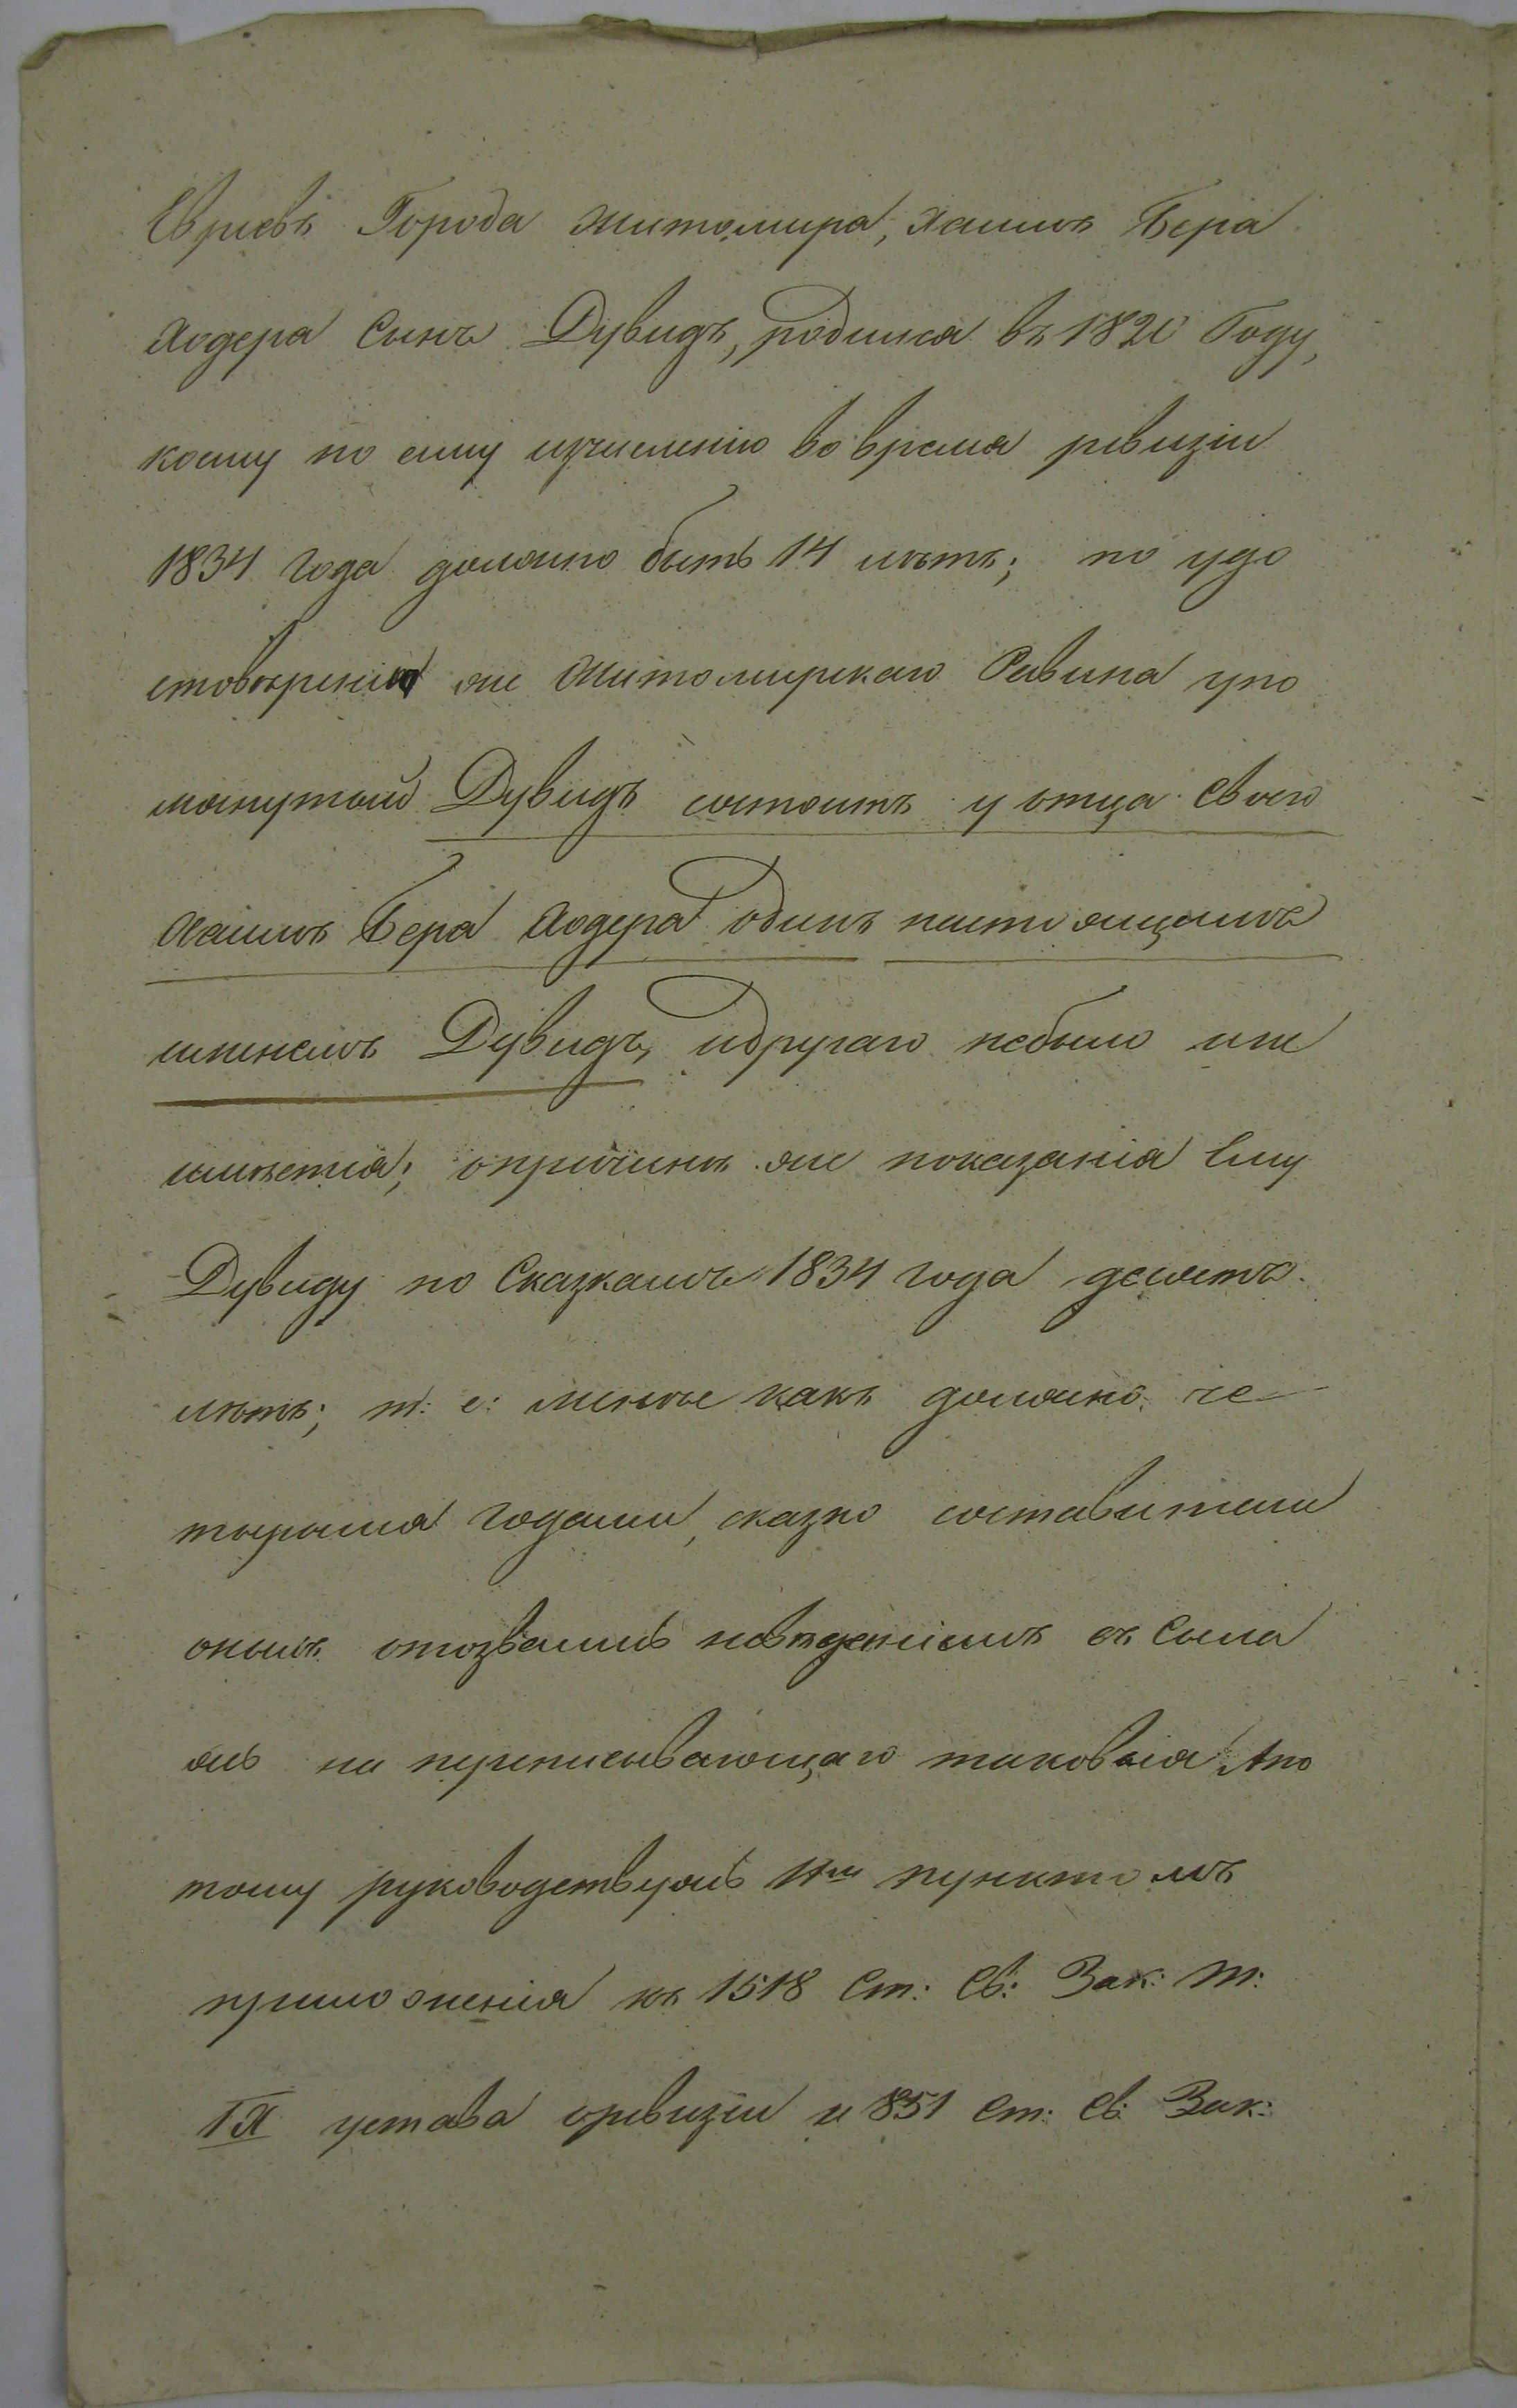 Евреевъ Города Житомира, Хаимъ Бера
Ходера Сынъ Дувидъ, родился въ 1820 Году,
коему по сему изчисленію во время ревизіи
1834 года должно быть 14 лѣтъ; по удо
стовѣренію же Житомирскаго Равина упо
мянутый Дувидъ состоитъ у отца своего
Хаимъ Бера Ходера одинъ настоящимъ
именемъ Дувидъ, идругаго небыло ине
имѣется; опричинѣ же показанія Ему
Дувиду по Сказкамъ 1834 года десять
лѣтъ; т: е: менѣе какъ должно че
тырьмя годами, сказко составители
оныхъ отозвались невѣденіемъ ссыла
ясь на переписывающаго таковыя. Апо
тому руководствуясь 11мъ пунктомъ
приложенія къ 1518 Ст: Св: Зак: Т:
IX устава оревизіи и 851 Ст: Св: Зак: